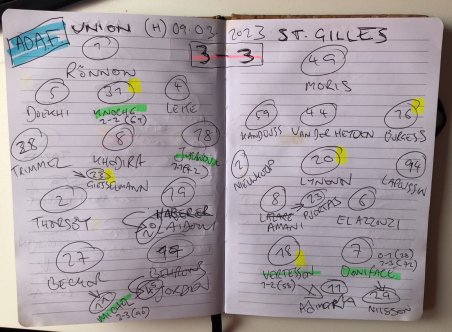 ADAF UNION (H) 09.03. 2023 ST. GILLES
3-3
1
RÖNNOW
49
MORIS
5
31
4
DOEKHI
KNOCHE
LEITE
2-2 (69)
59
44
26
KANDOUSS
VAN DER HEYDEN
BURGESS
28
8
18
TRIMMEL
KHEDIRA
23
GIESSELMANN
2
20
94
NIEUWKOOP
LYNNON
LAPOUSSIN
2
19
THORSBY
HABERER
20
8
23
6
LAZARE
AMANI
PUERTAS
EL AZZOUZI
27
BECKER
BEHRENS
JORDAN
11
3-3 (
18
7
VERTESSEN
BONIFACE
2-2 (58)
0-1 (28)
2-3 (72)
11
29
ADINGRA
NILSSON